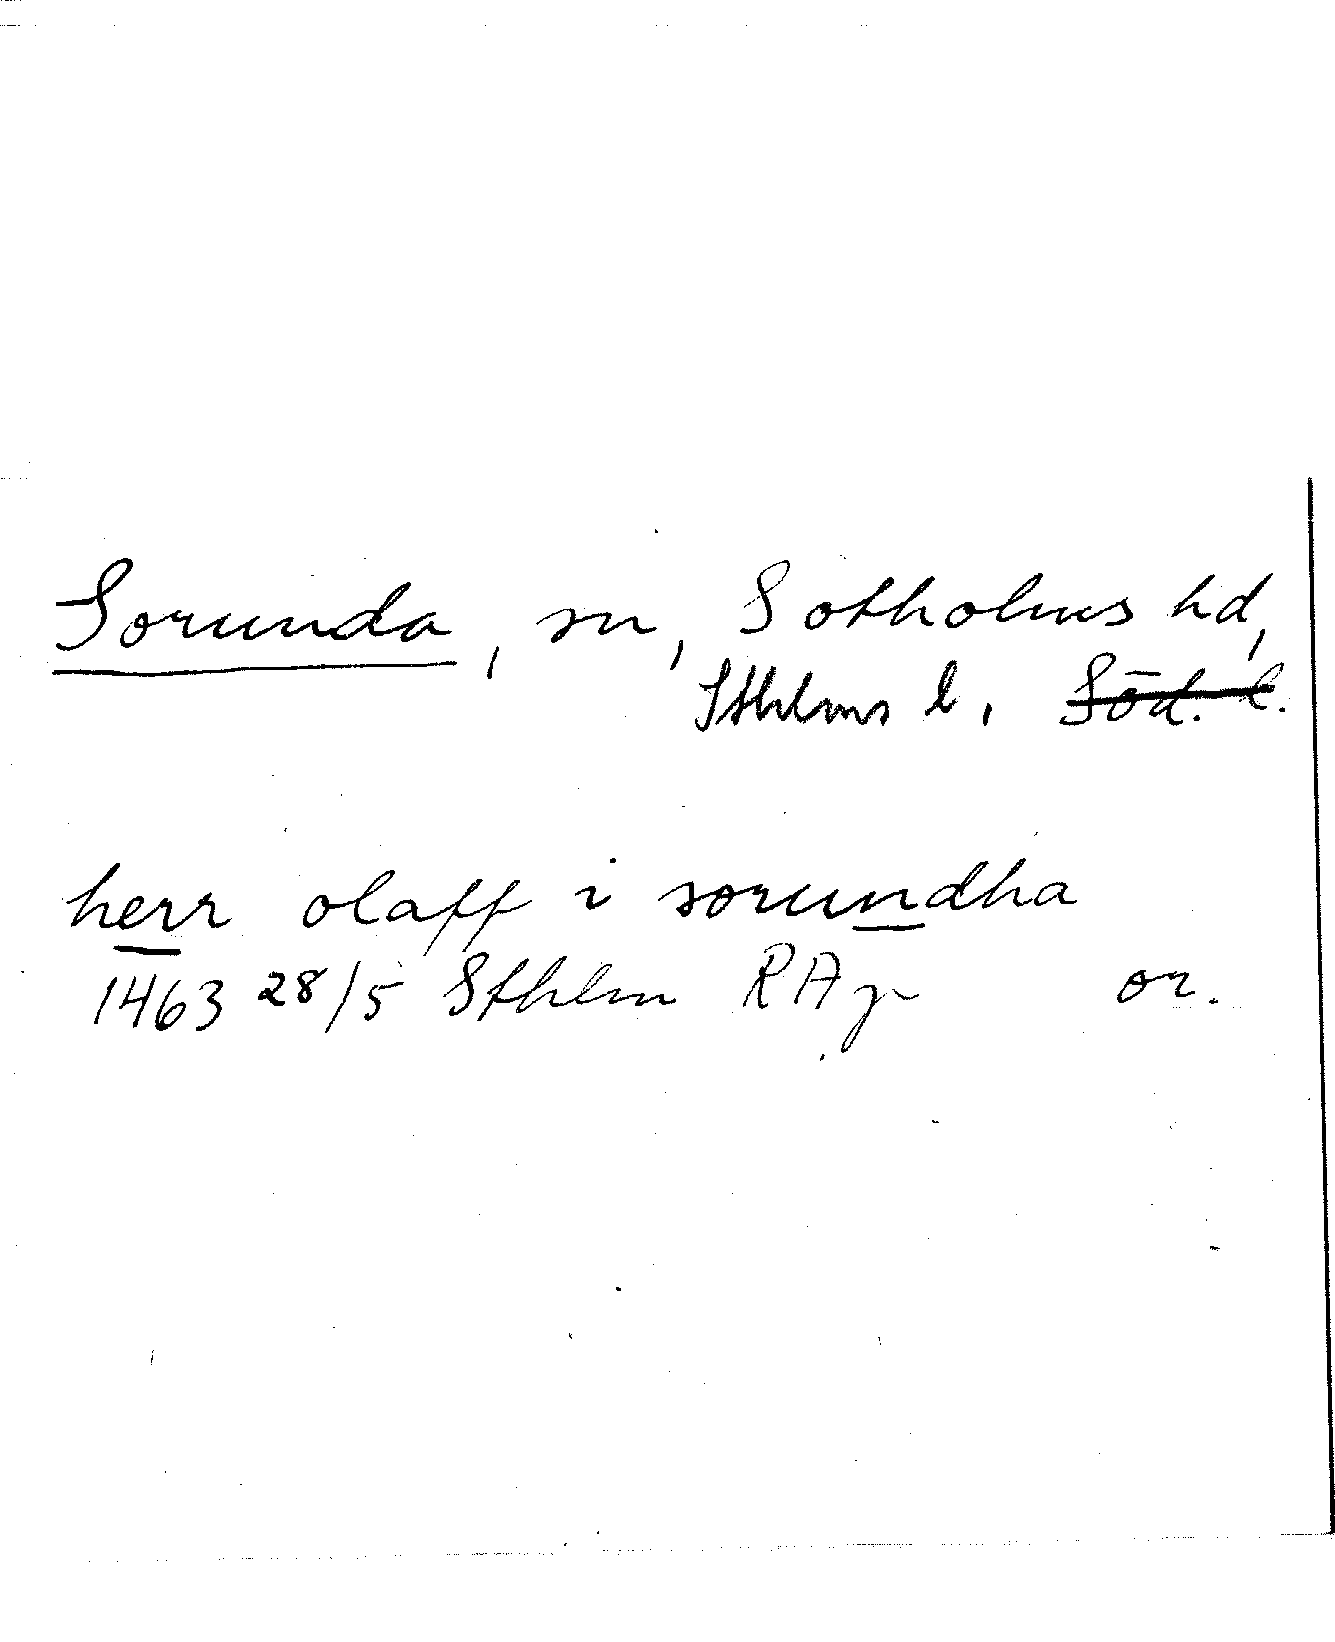 Sorunda, sn, Sotholms hd,
Sthlms l, Söd. l.
herr olaff i sorundha
1463 28/5 Sthlm RAp or.